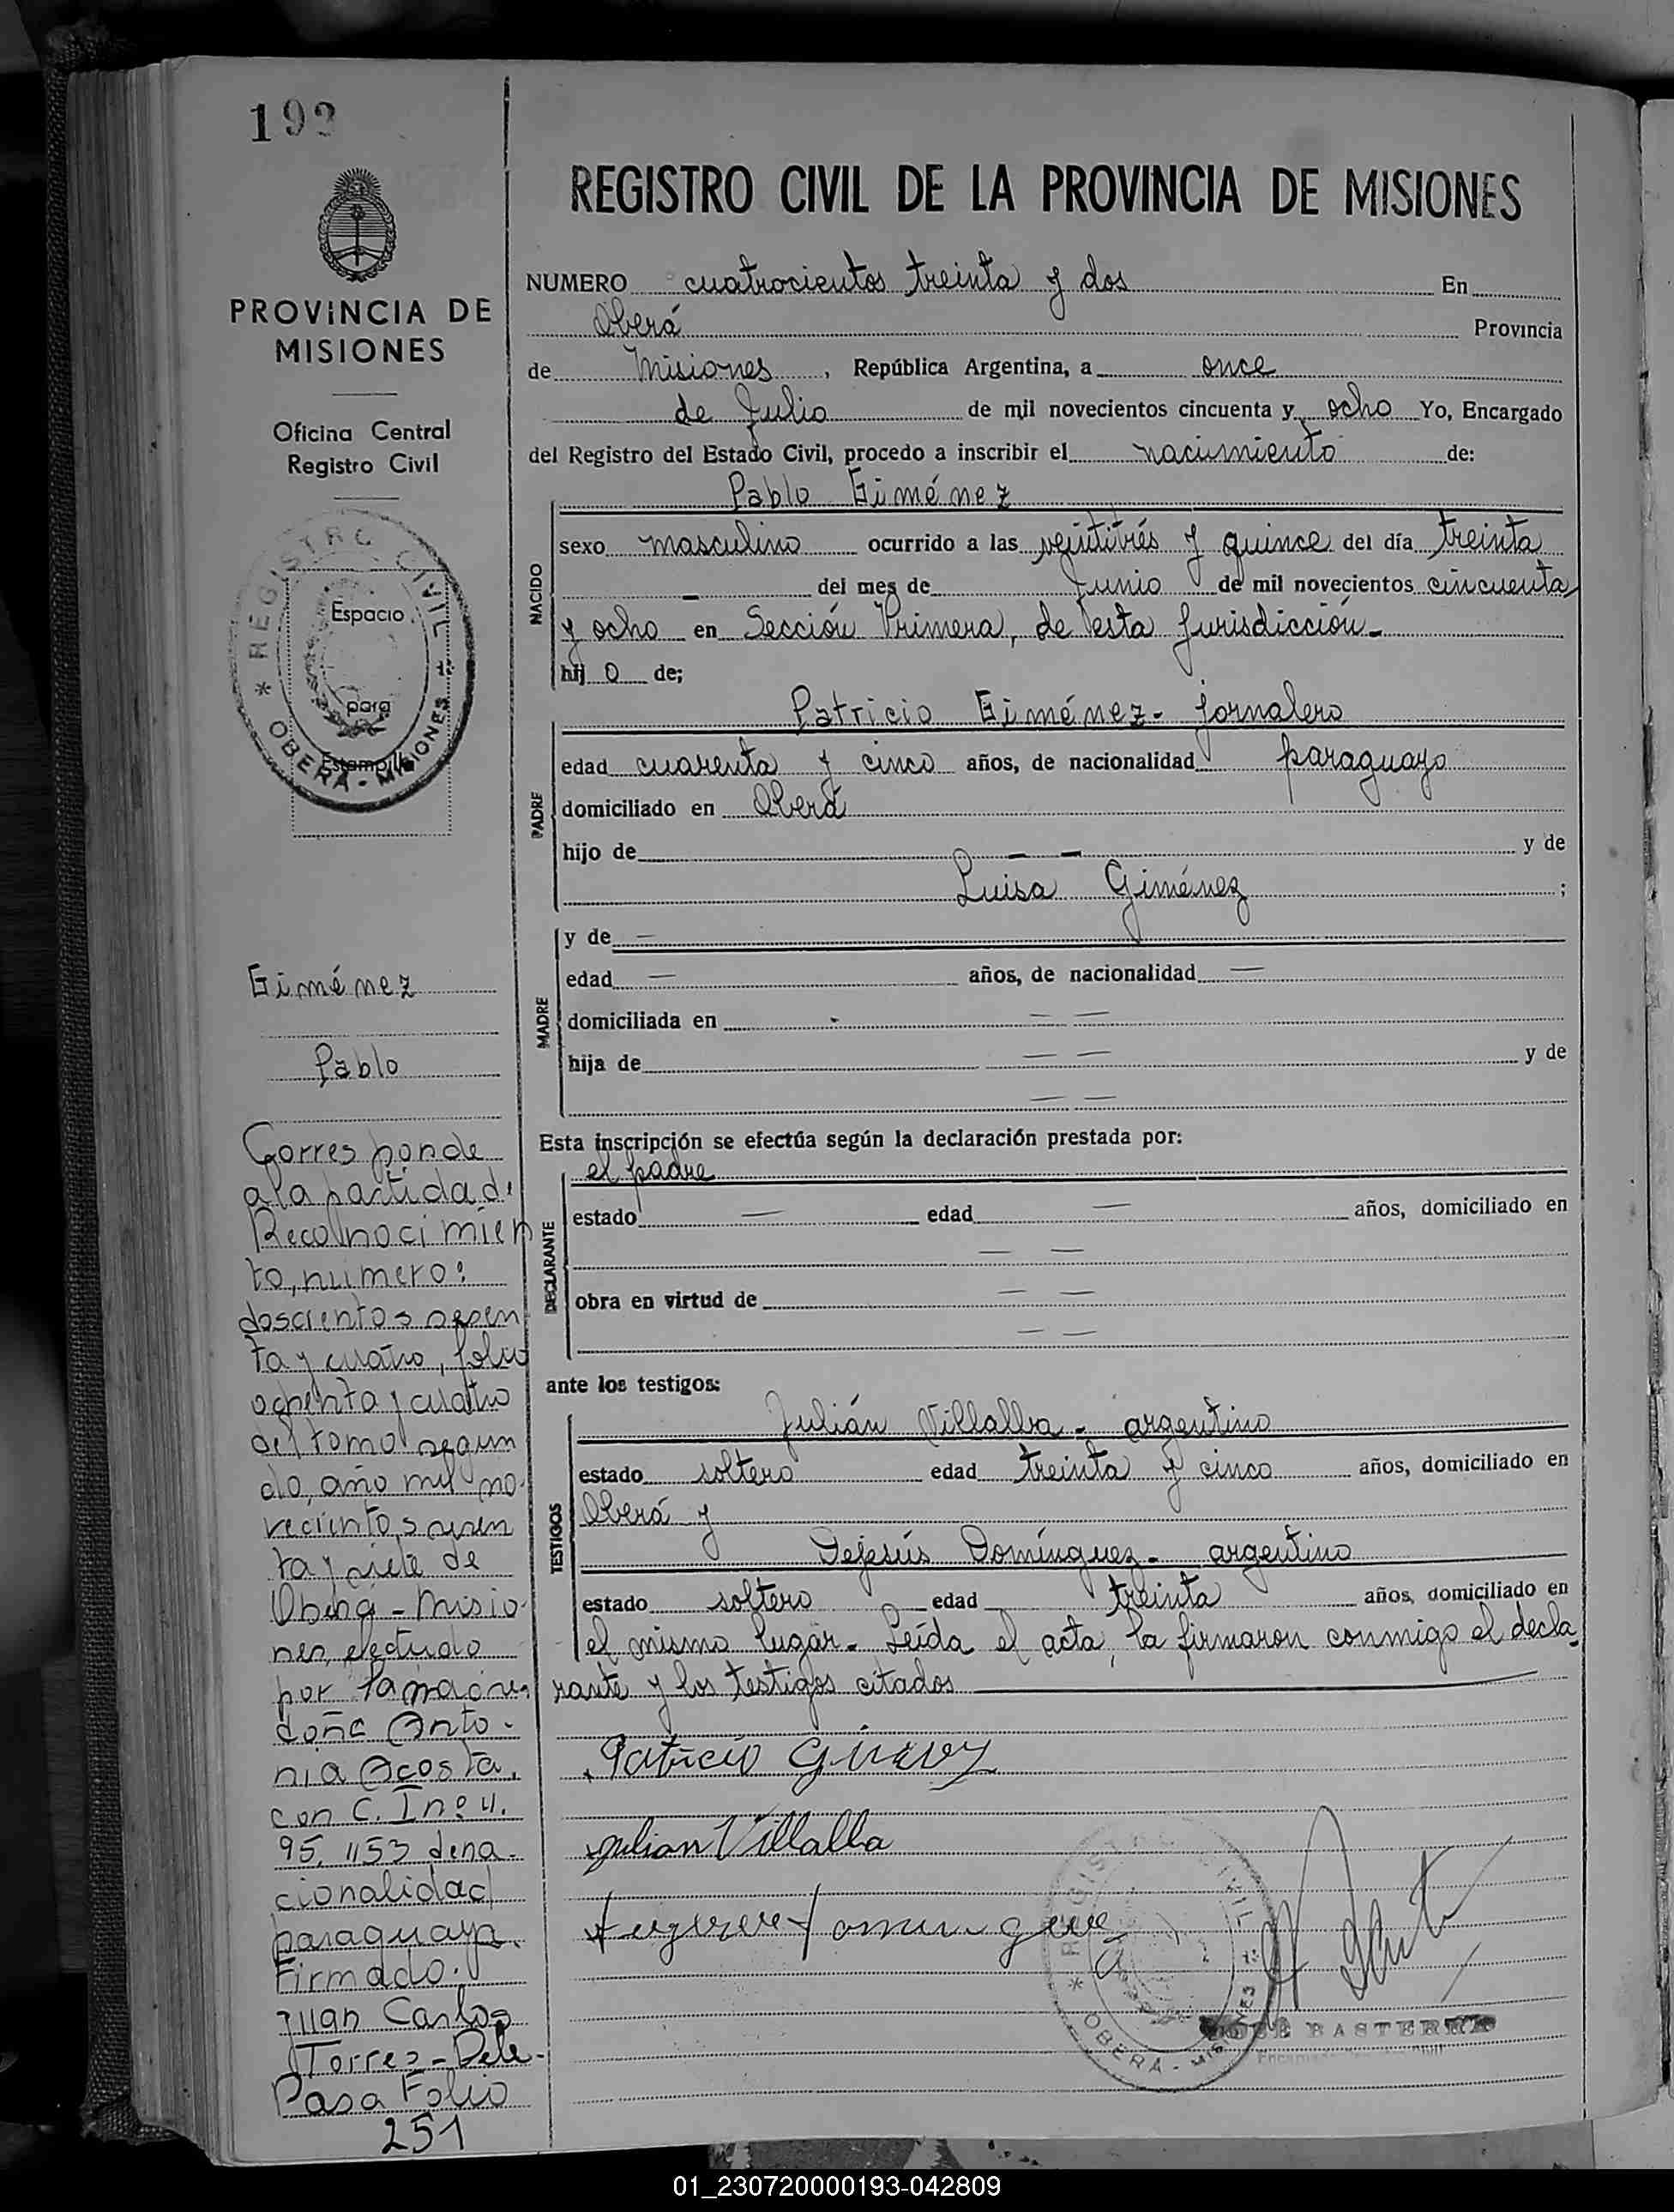 192
PROVINCIA DE
MISIONES
Oficina Central
Registro Civil
REGISTRO CIVIL
* OBERÁ - MISIONES
Espacio
para
Estampilla
Giménez
Pablo
Corresponde
a la partida de
Reconocimien
to, número:
doscientos sesen
ta y cuatro, folio
ochenta y cuatro
del tomo segun
do, año mil no-
vecientos sesen
ta y siete de
Oberá - Misio-
nes, efectuado
por la madre
doña Anto-
nia Acosta,
con C. I nº 4.
95. 1153 de na-
cionalidad
paraguaya.
Firmado.
Juan Carlos
Torres - Dele-
Pasa Folio
251
REGISTRO CIVIL DE LA PROVINCIA DE MISIONES
NUMERO cuatrocientos treinta y dos En
Oberá Provincia
de Misiones, República Argentina, a once
de Julio de mil novecientos cincuenta y ocho Yo, Encargado
del Registro del Estado Civil, procedo a inscribir el nacimiento de:
Pablo Giménez
NACIDO
sexo masculino ocurrido a las veintitrés y quince del día treinta
del mes de Junio de mil novecientos cincuenta
y ocho en Sección Primera, de esta Jurisdicción-
hij o de;
Patricio Giménez- Jornalero
PADRE
edad cuarenta y cinco años, de nacionalidad paraguayo
domiciliado en Oberá
hijo de — — y de
Luisa Giménez ;
MADRE
y de —
edad — años, de nacionalidad —
domiciliada en — —
hija de — — y de
— —
Esta inscripción se efectúa según la declaración prestada por:
el padre
DECLARANTE
estado — edad — años, domiciliado en
— —
obra en virtud de — —
— —
ante los testigos:
Julián Villalba - argentino
TESTIGOS
estado soltero edad treinta y cinco años, domiciliado en
Oberá y
Dejesús Domínguez- argentino
estado soltero edad treinta años, domiciliado en
el mismo lugar- Leída el acta, la firmaron conmigo el decla
rante y los testigos citados
Patricio
Julian Villalba
REGISTRO CIVIL
* OBERÁ - MISIONES
JOSÉ BASTERRA
01_230720000193-042809